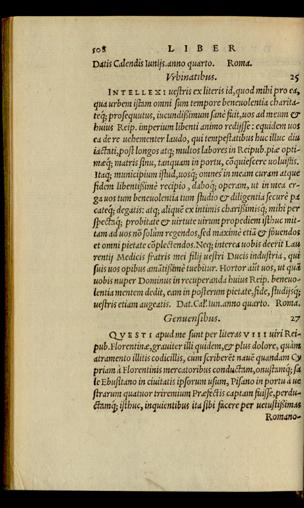 508 LIBER
Datis Calendis Iunijs. anno quarto. Roma.
Vrbinatibus. 25
INTELLEXI uestris ex literis id, quod mihi pro ea,
qua urbem istam omni sum tempore beneuolentia charita-
teq́; prosequutus, iucundissimum sanè fuit, uos ad meum &
huius Reip. imperium libenti animo redijsse: equidem uos
ea de re uehementer laudo, qui tempestatibus huc illuc diu
iactati, post longos atq; multos labores in Reipub. piæ opti-
mæq́; matris sinu, tanquam in portu, cõquiescere uoluistis.
Itaq; municipium istud, uosq́; omnes in meam curam atque
fidem libentissimè recipio, daboq́; operam, ut in mea er-
ga uos tum beneuolentia tum studio & diligentia securè pa
cateq́; degatis: atq; aliquē ex intimis charissimisq́; mihi per
spectæq́; probitate & uirtute uirum propediem isthuc mit-
tam ad uos nō solum regendos, sed maximè etiā & fouendos
et omni pietate cōplectendos. Neq; interea uobis deerit Lau
rentij Medicis fratris mei filij uestri Ducis industria, qui
suis uos opibus amātissimè tuebitur. Hortor aūt uos, ut quā
uobis nuper Dominus in recuperanda huius Reip. beneuo-
lentia mentem dedit, eam in posterum pietate, fide, studijsq́;
uestris etiam augeatis. Dat. Cal. Iun. anno quarto. Roma.
Genuensibus. 27
QVESTI apud me sunt per literas VIII uiri Rei-
pub. Florentinæ, grauiter illi quidem, & plus dolore, quàm
atramento illitis codicillis, cùm scriberēt nauē quandam Cy
priam à Florentinis mercatoribus conductam, onustamq́; sa
le Ebusitano in ciuitatis ipsorum usum, Pisano in portu à ue
strarum quatuor triremium Præfectis captam fuisse, perdu-
ctamq́; isthuc, inquientibus ita sibi facere per uetustissimas
Romano-